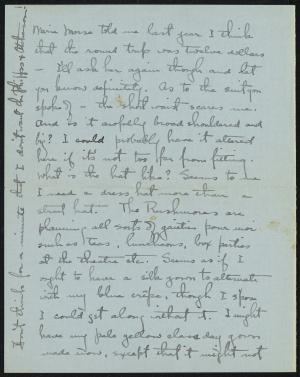 Marie Morse told me last year I think
that the round trip was twelve dollars
– I'll ask her again though and let
you know definitely. As to the suit you
spoke of – the short waist scares me.
And is it awfully broad shouldered and
big? I could probably have it altered
here if it's not too far from fitting.
What is the hat like? Seems to me
I need a dress hat more than a
street hat. The Rushmores are
planning all sorts of gaieties for me
such as teas, luncheons, box parties
at the theatre etc. Seems as if I
ought to have a silk gown to alternate
with my blue crêpe, though I spose
I could get along without it. I might
have my pale yellow class day gown
made now, except that it might not
Don't think for a minute that I don't want the